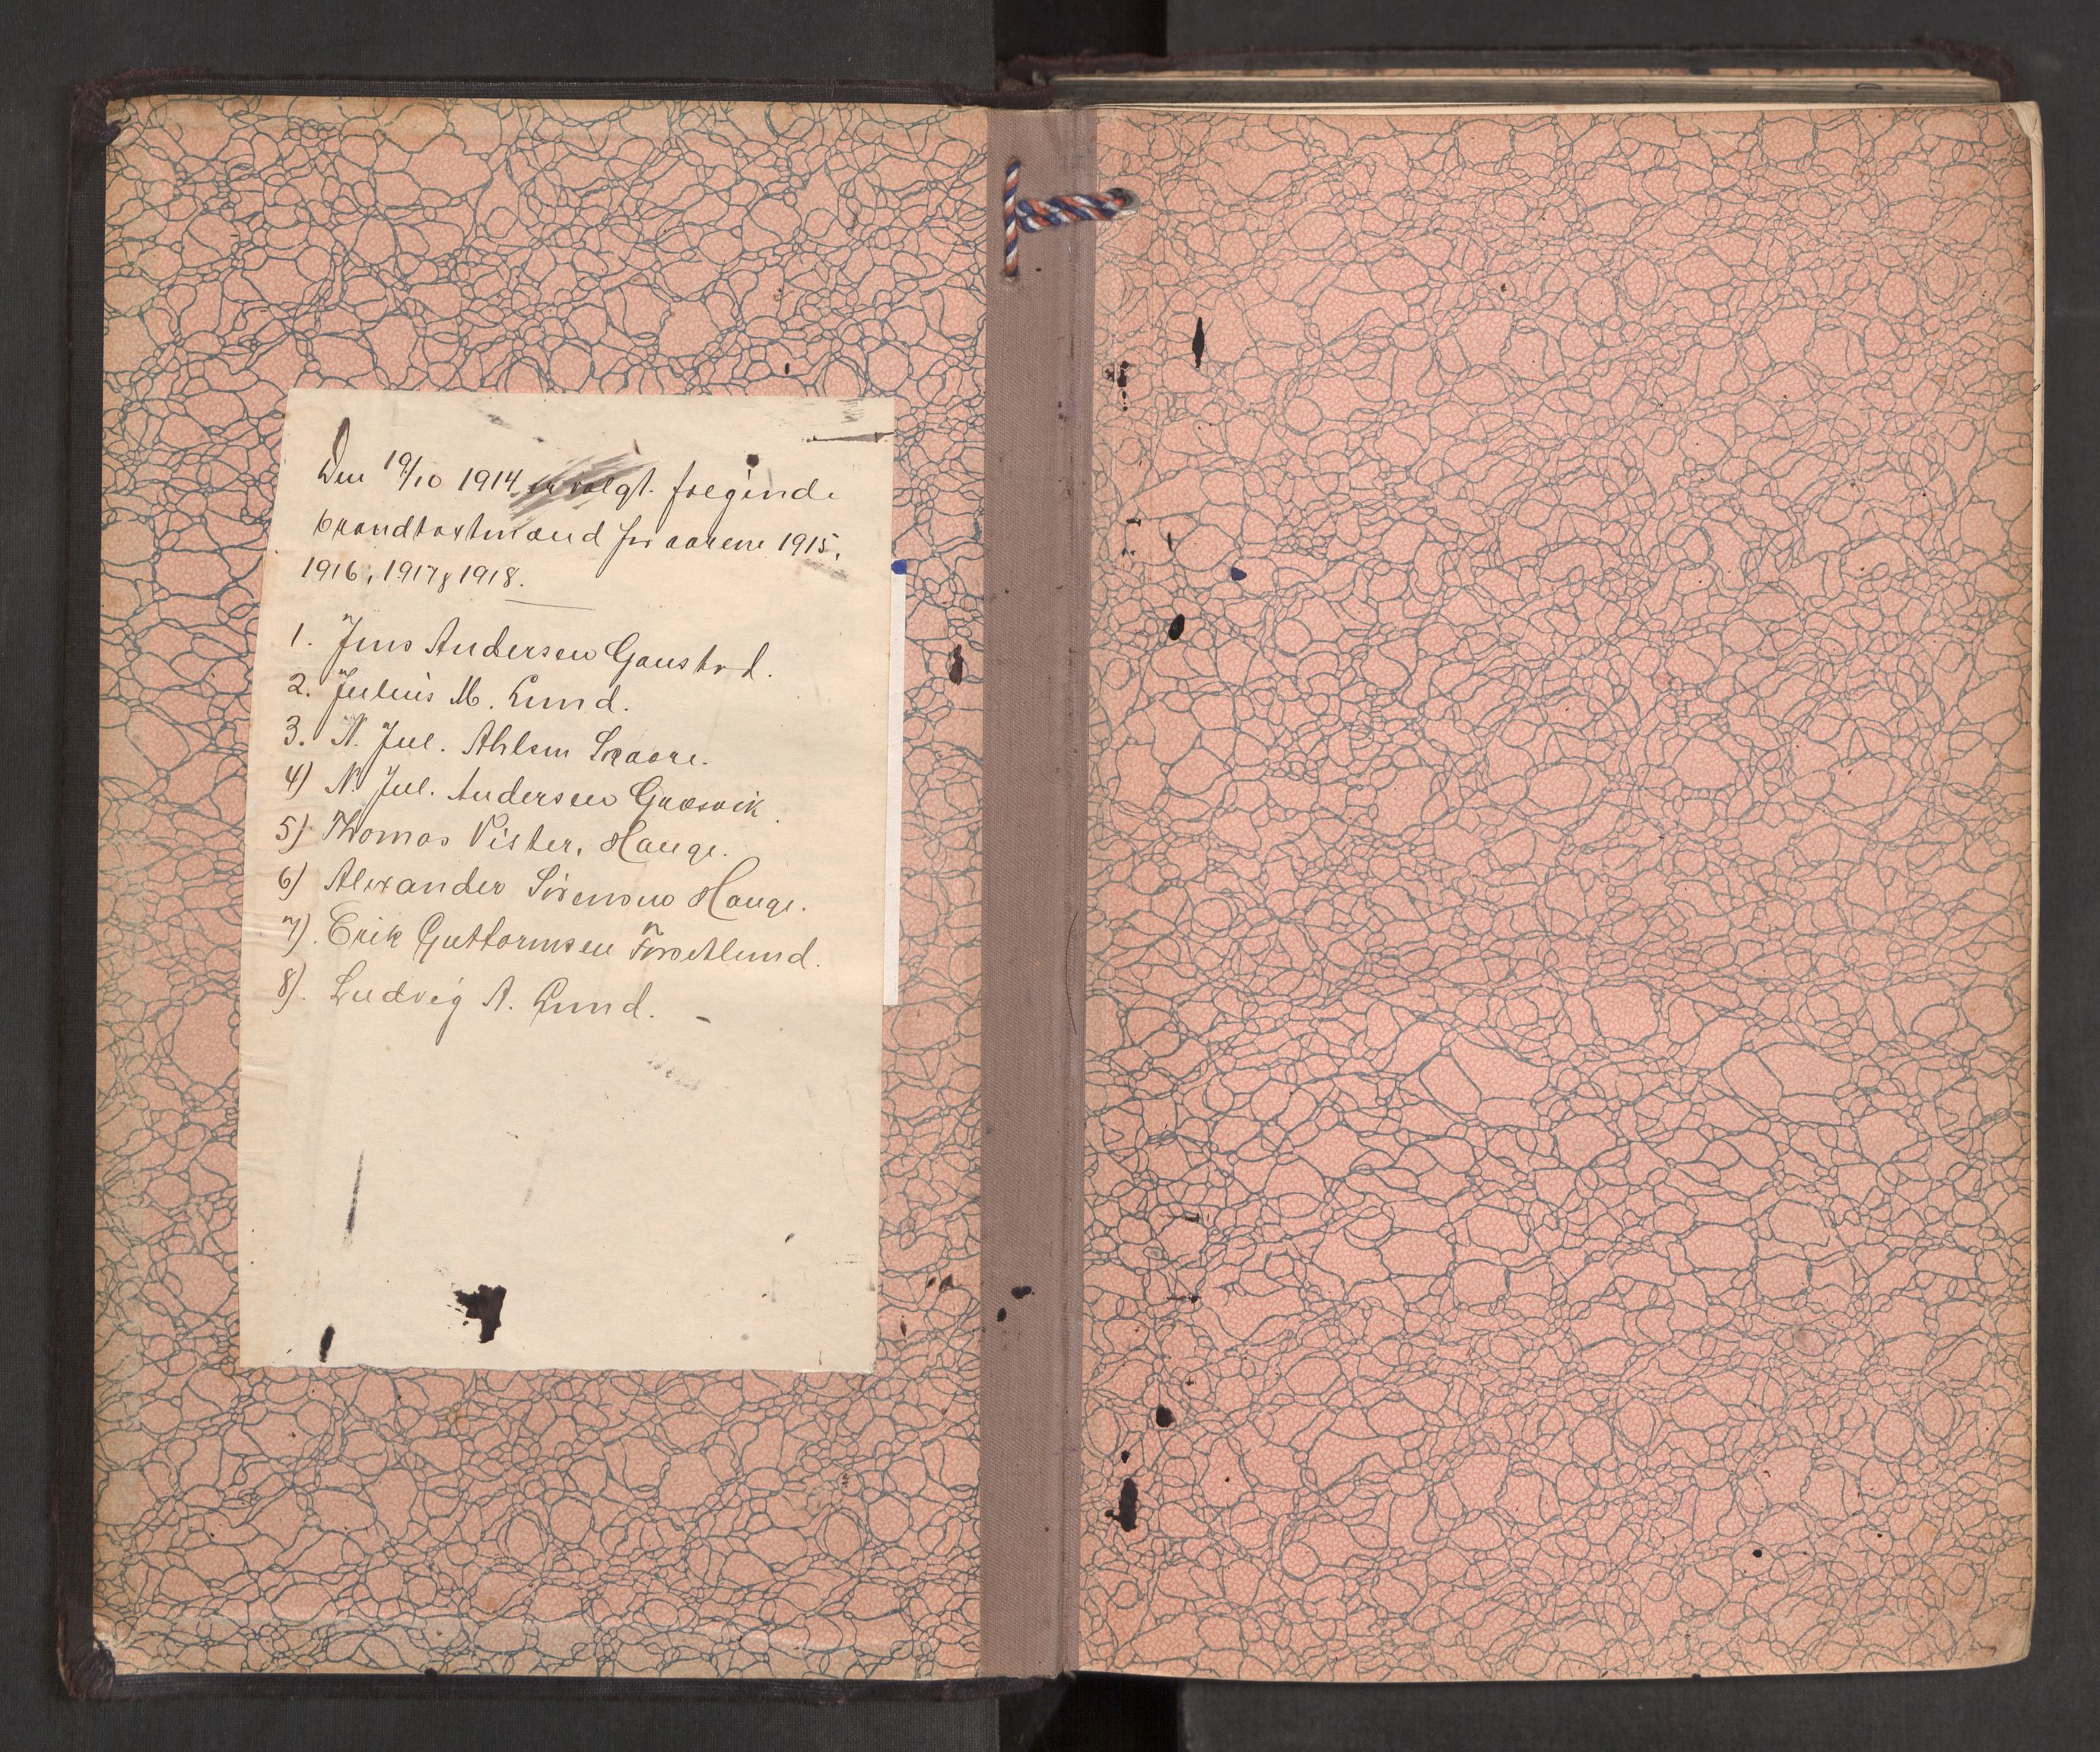 Den 19/10 1914 er valgt følgende
brandtaxtmænd for aarene 1915,
1916, 1917 & 1918.
1. Jens Andersen Gaustad.
2. Julius M. Lund.
3. N. Jul. Ahlsen Skaare.
4) N. Jul. Andersen Græsvik.
5) Thomas Vister, Hauge.
6) Alexander Sørensen Hauge.
7). Erik Guttormsen
8). Ludvig A. Lund.